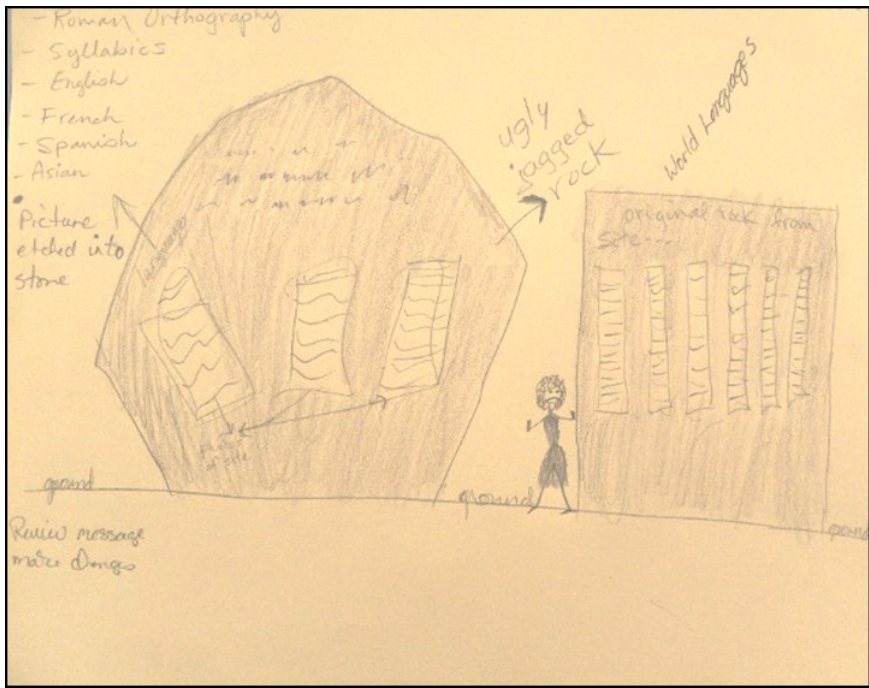 - Roman Orthography
- Syllabics
- English
- French
- Spanish
- Asian
• Picture
etched into
stone
languages
ugly
jagged
rock
World Languages
original rock from
site---
photos
of site
ground
ground
ground
Review message
make Changes